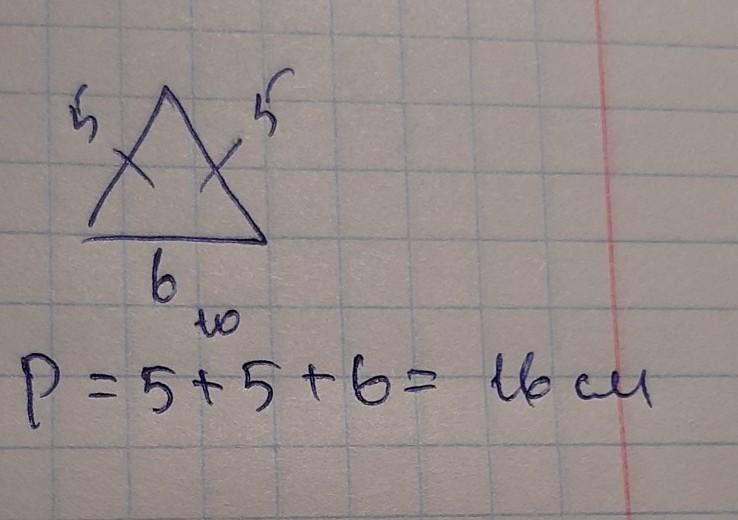 5 5
6
10
P = 5 + 5 + 6 = 16 см